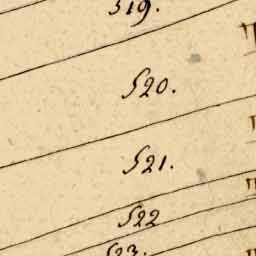 519.
520.
521.
522
523.